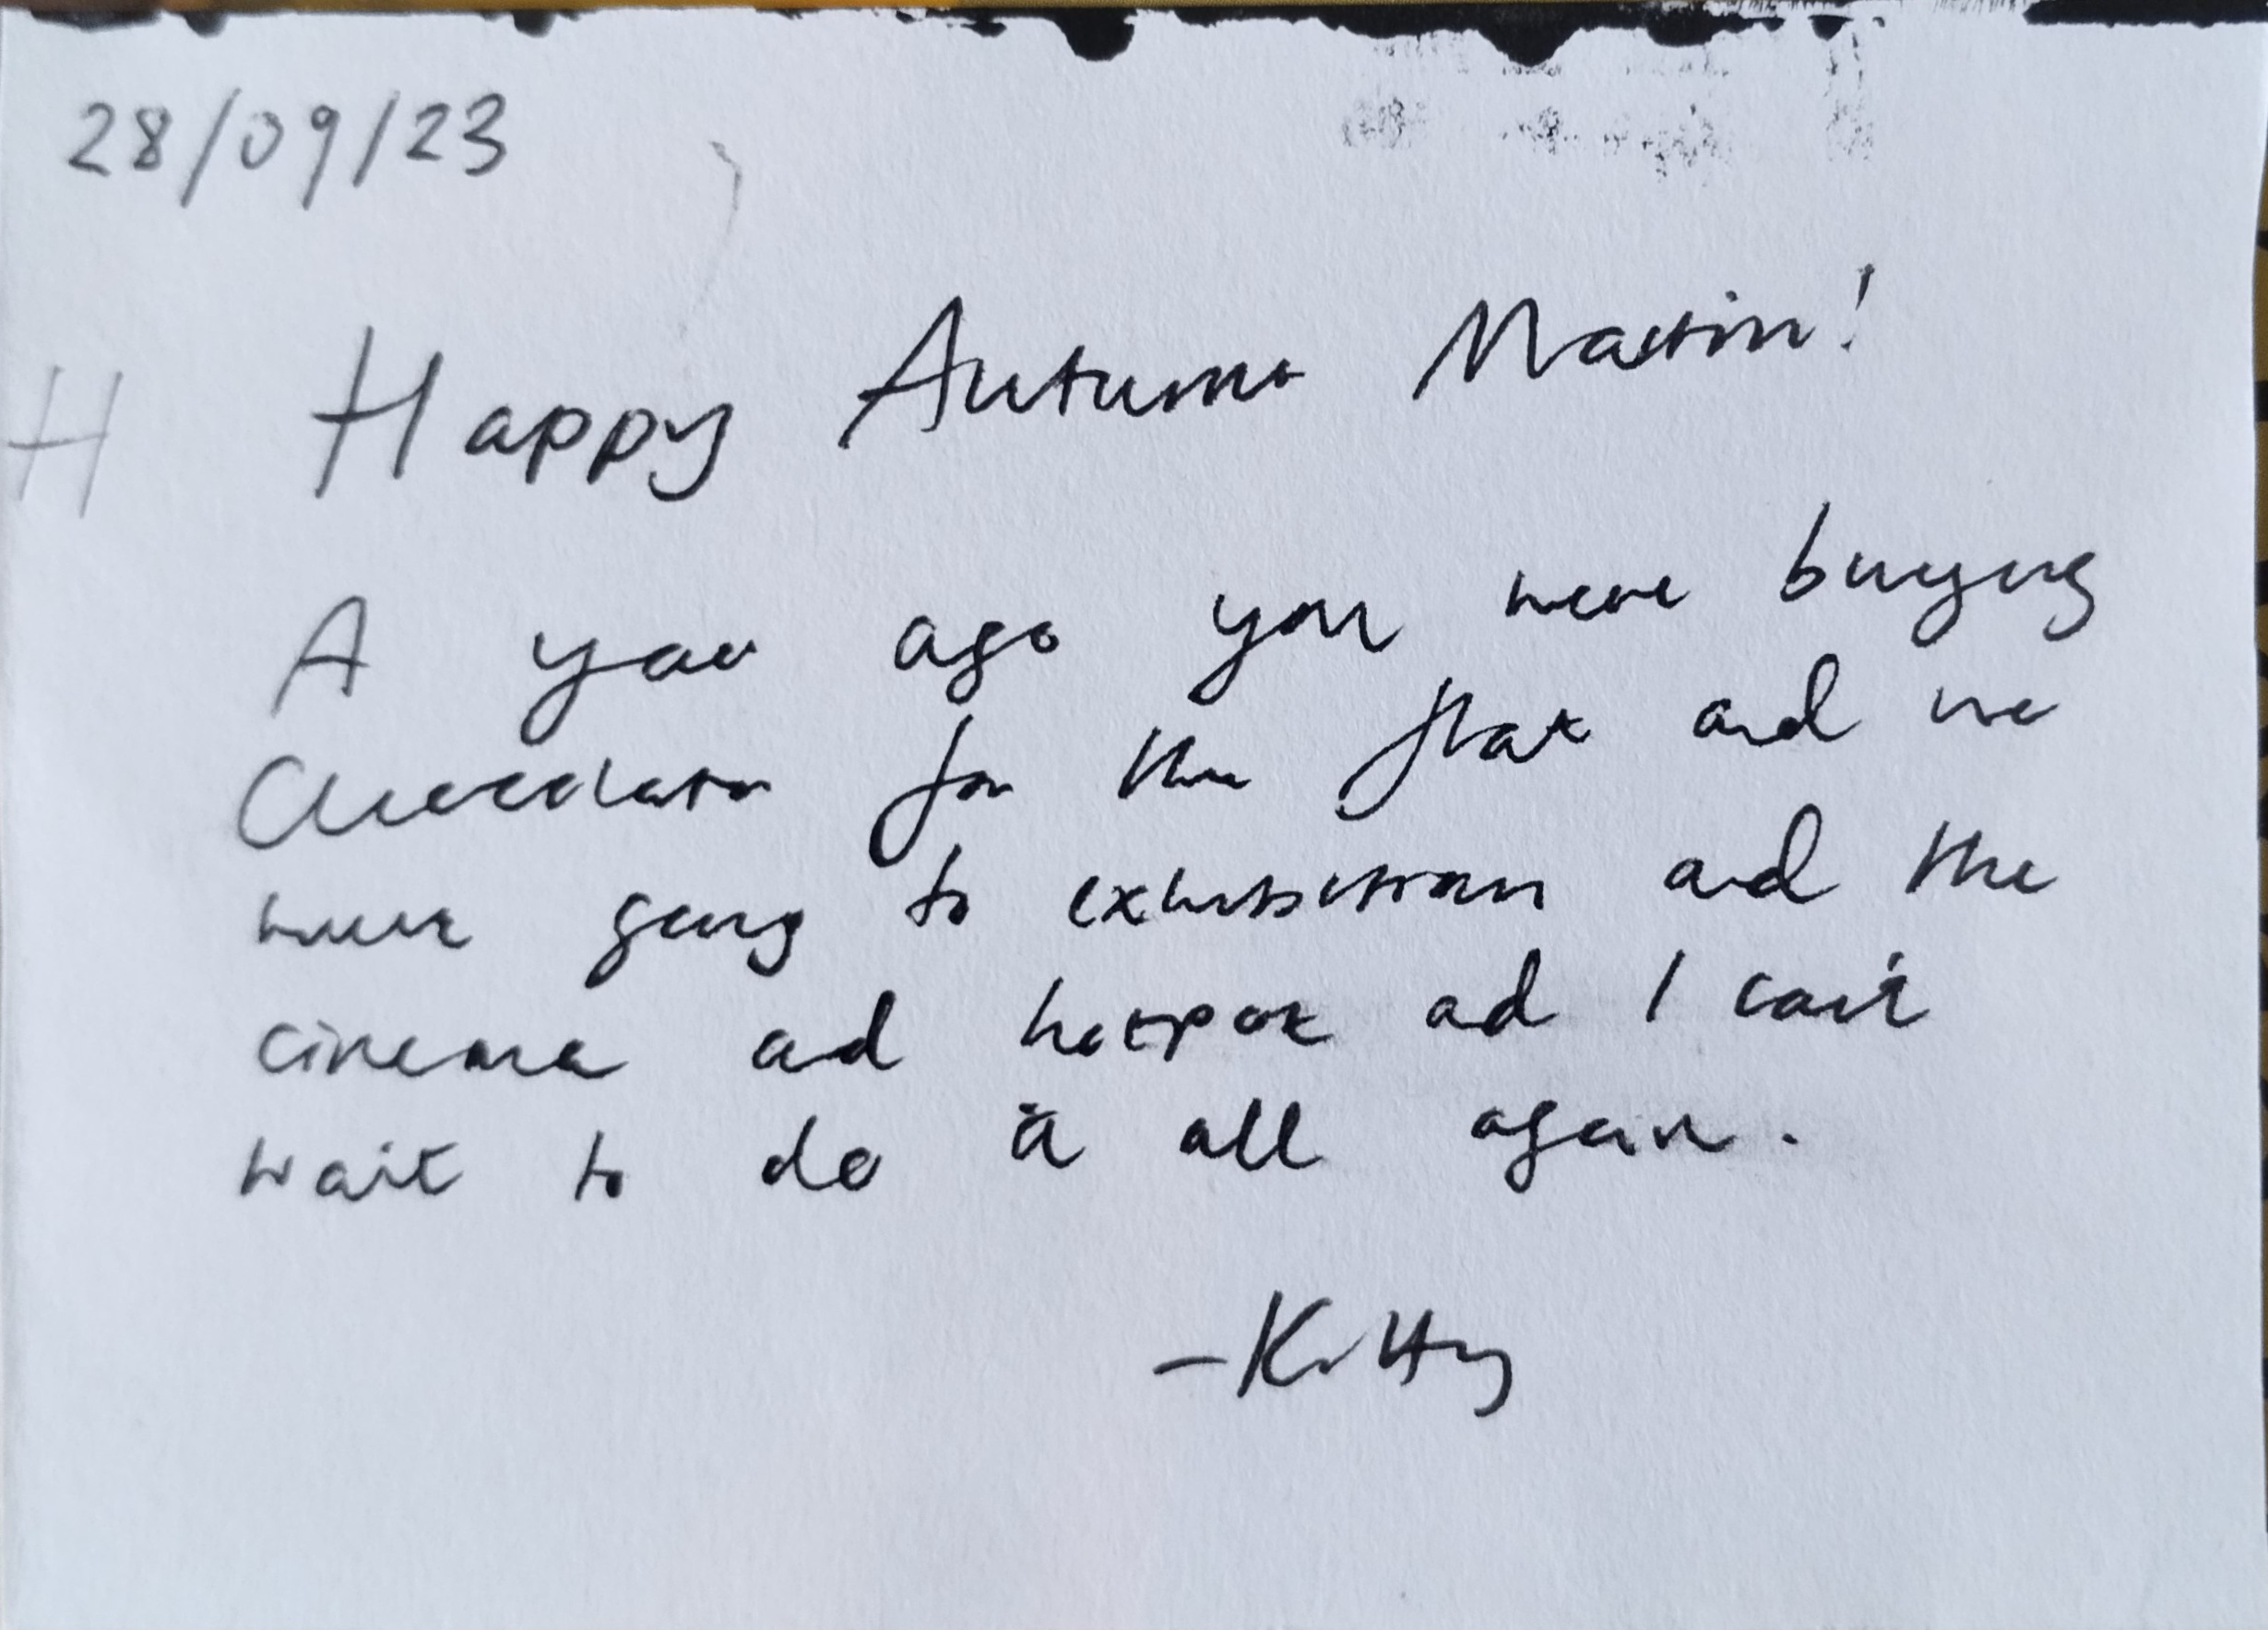 28/09/23
H Happy Autumn Martin!
A year ago you were buying
chocolates for the flat and we
were going to exhibitions and the
cinema and hotpot and I can't
wait to do it all again.
-Kitty